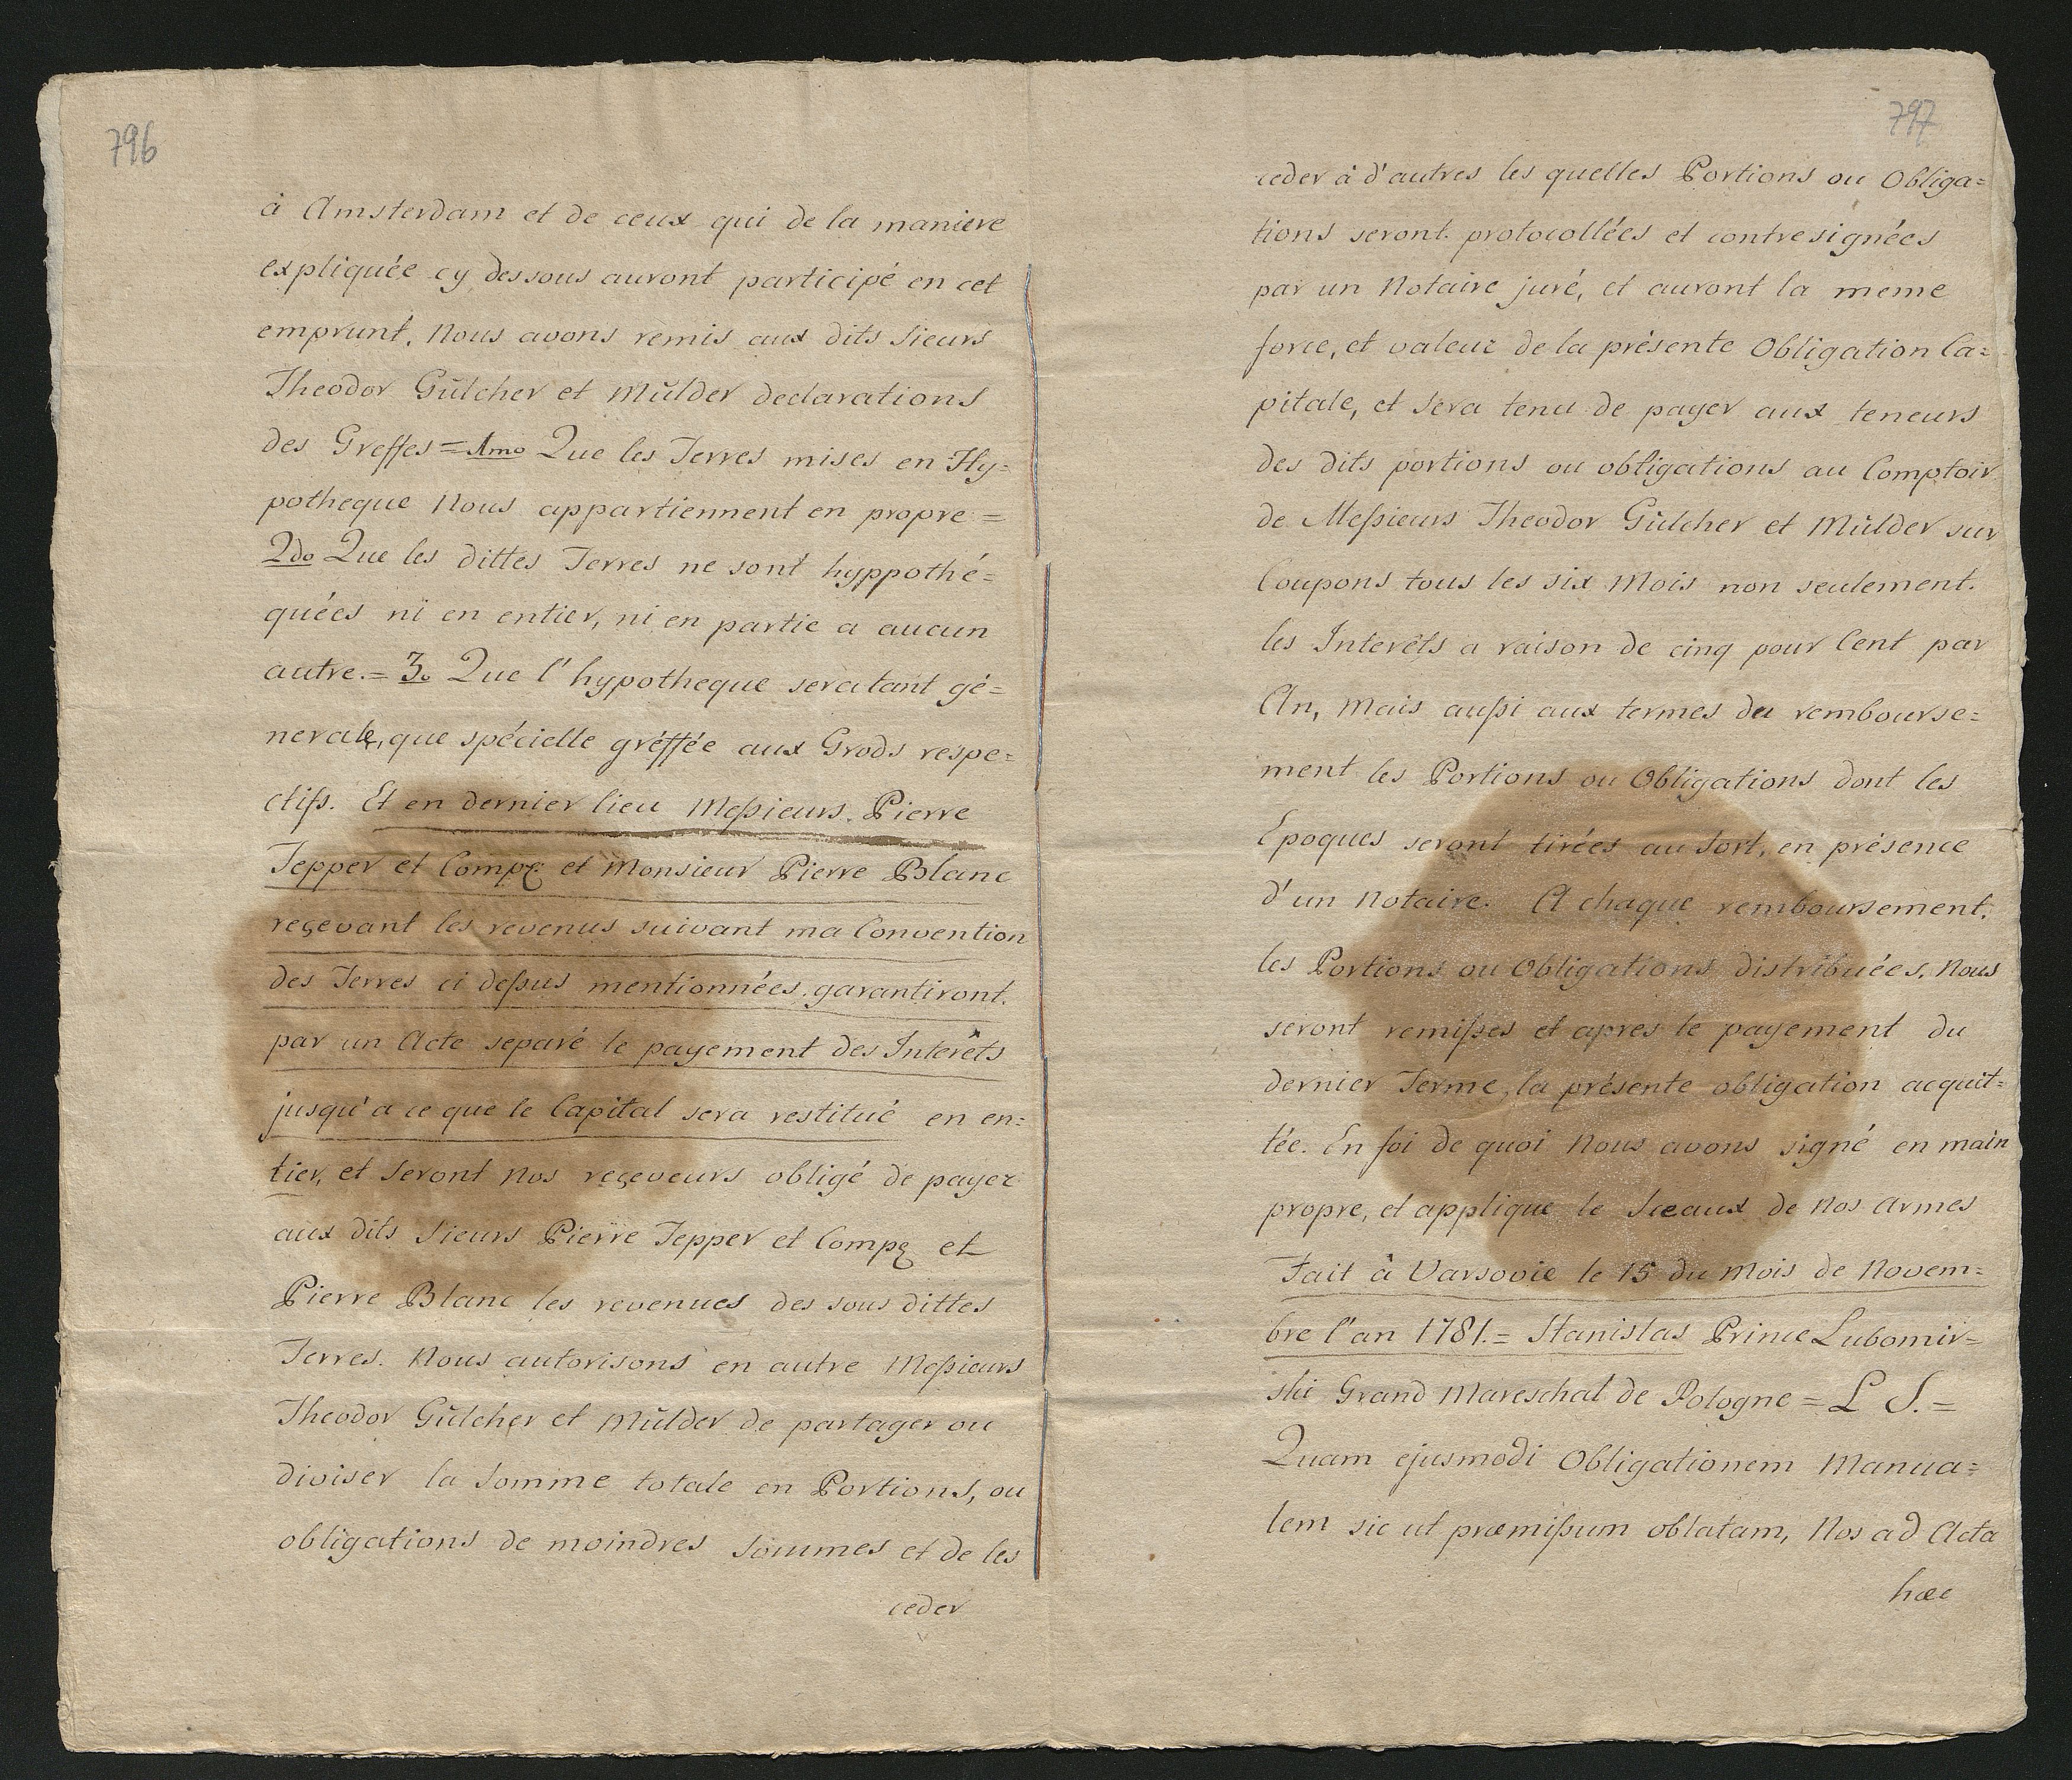 796
à Amsterdam et de ceux qui de la maniere
expliquée cy dessous auront participé en cet
emprunt. Nous avons remis aux dits Sieurs
Theodor Gülcher et Mülder declarations
des Greffes = 1mo Que les Terres mises en Hy=
potheque Nous appartiennent en propre =
2do Que les dittes Terres ne sont hyppothé=
quées ni en entier, ni en partie a aucun
autre. = 3o Que l'hypotheque sera tant gé=
nerale, que spécielle gréffée aux Grods respe=
ctifs. Et en dernier lieu Messieurs. Pierre
Tepper et Compe et Monsieur Pierre Blanc
reçevant les revenus suivant ma Convention
des Terres ci dessus mentionnées, garantiront
par un Acte separé le payement des Interêts
jusqu'a ce que le Capital sera restitué en en=
tier, et seront nos reçeveurs obligé de payer
aux dits Sieurs Pierre Tepper et Compe et
Pierre Blanc les revenues des sous dittes
Terres. Nous autorisons en autre Messieurs
Theodor Gülcher et Mülder de partager ou
diviser la Somme totale en Portions, ou
obligations de moindres Sommes et de les
ceder
797
ceder à d'autres les quelles Portions ou Obliga=
tions seront protocollées et contresignées
par un Notaire juré, et auront la meme
force, et valeur de la présente Obligation Ca=
pitale, et sera tenu de payer aux teneurs
des dits portions ou obligations au Comptoir
de Messieurs Theodor Gülcher et Mülder sur
Coupons tous les six Mois non seulement
les Interêts a raison de cinq pour Cent par
An, Mais aussi aux termes du rembourse=
ment les Portions ou Obligations dont les
Epoques seront tirées au Sort, en présence
d'un Notaire. A chaque remboursement,
les Portions ou Obligations distribuées, Nous
seront remisses et apres le payement du
dernier Terme, la présente obligation acquit=
tée. En foi de quoi Nous avons signé en main
propre, et applique le Sceaux de Nos Armes
Fait à Varsovie le 15 du Mois de Novem=
bre l'an 1781. = Stanislas Prince Lubomir=
ski Grand Mareschal de Pologne = L S. =
Quam ejusmodi Obligationem Manua=
lem sic ut præmissum oblatam, Nos ad Acta
hæc